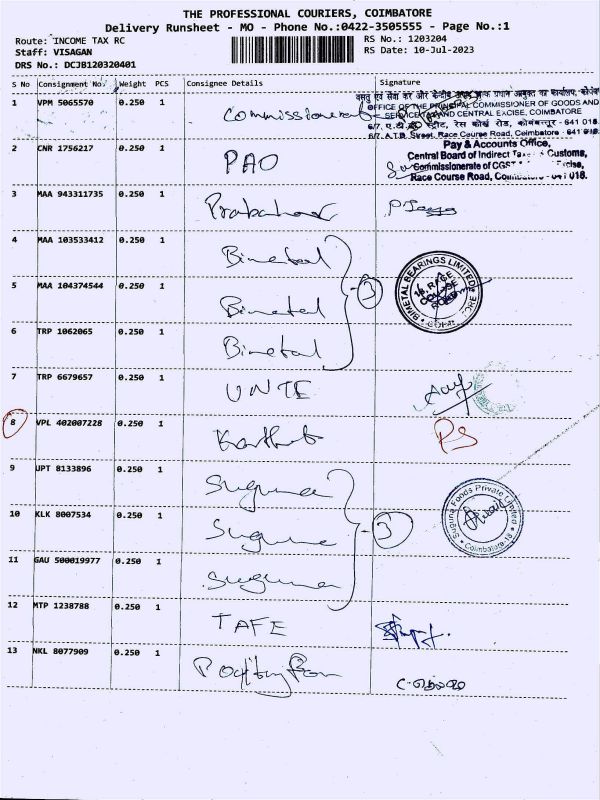 THE PROFESSIONAL COURIERS, COIMBATORE
Delivery Runsheet - MO - Phone No.:0422-3505555 - Page No.:1
Route: INCOME TAX RC RS No.: 1203204
Staff: VISAGAN RS Date: 10-Jul-2023
DRS No.: DCJB120320401
S No Consignment No. Weight PCS Consignee Details Signature
1 VPM 5065570 0.250 1
OFFICE OF THE PRINCIPAL COMMISSIONER OF GOODS AND
SERVICE TAX AND CENTRAL EXCISE, COIMBATORE
6/7, ए.टी.डी. स्ट्रीट, रेस कोर्स रोड, कोयम्बत्तूर - 641 018.
6/7, A.T.D. Street, Race Course Road, Coimbatore - 641 018.
2 CNR 1756217 0.250 1 PAO
Pay & Accounts Office,
Central Board of Indirect Taxes & Customs,
Commissionerate of CGST
Race Course Road, 641 018.
3 MAA 943311735 0.250 1
4 MAA 103533412 0.250 1 Bimetal
5 MAA 104374544 0.250 1 Bimetal 3
BIMETAL BEARINGS LIMITED
18, RACE
COURSE
ROAD
6 TRP 1062065 0.250 1 Bimetal
7 TRP 6679657 0.250 1 UNTE
8 VPL 402007228 0.250 1
9 UPT 8133896 0.250 1 Suguna
10 KLK 8007534 0.250 1 Suguna 3
Suguna Foods Private Limited
Coimbatore-18
11 GAU 500019977 0.250 1 Suguna
12 MTP 1238788 0.250 1 TAFE
13 NKL 8077909 0.250 1